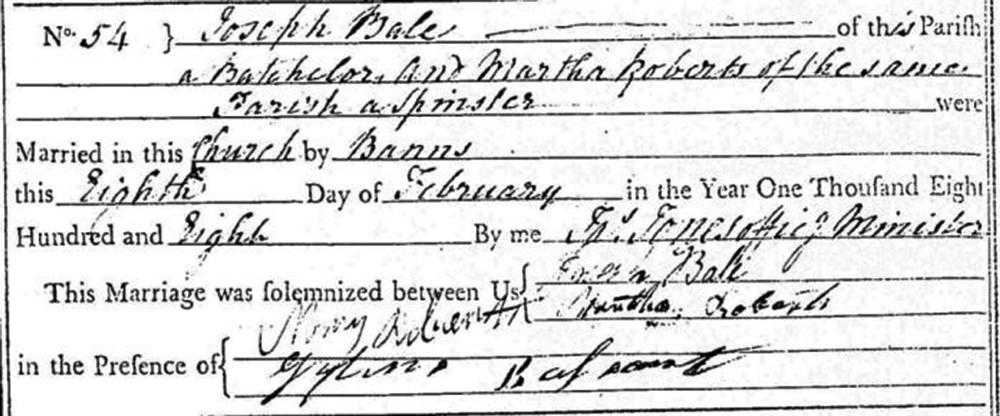 No. 54 } Joseph Bale of this Parish
a Batchelor, and Martha Roberts of the same
Parish a Spinster were
Married in this Church by Banns
this Eighth Day of February in the Year One Thousand Eight
Hundred and Eight By me Jones Offig Minister
This Marriage was solemnized between Us { Bale
Martha Roberts
in the Presence of {